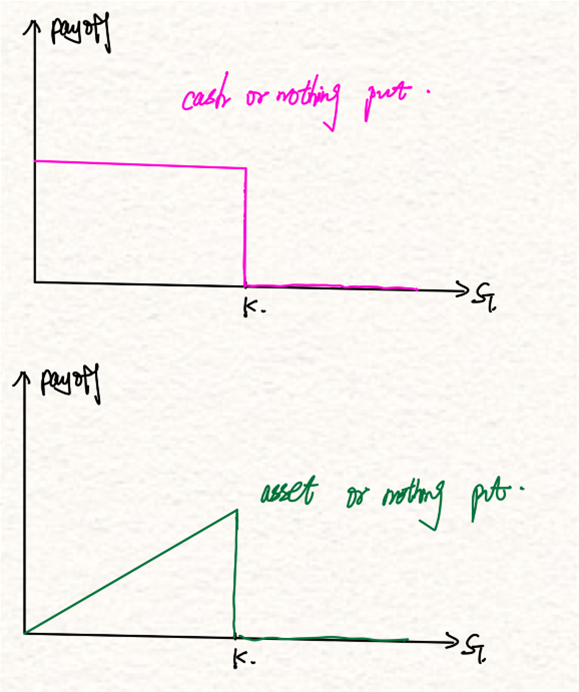 payoff
cash or nothing put.
K.
S_T
payoff
asset or nothing put.
K.
S_T